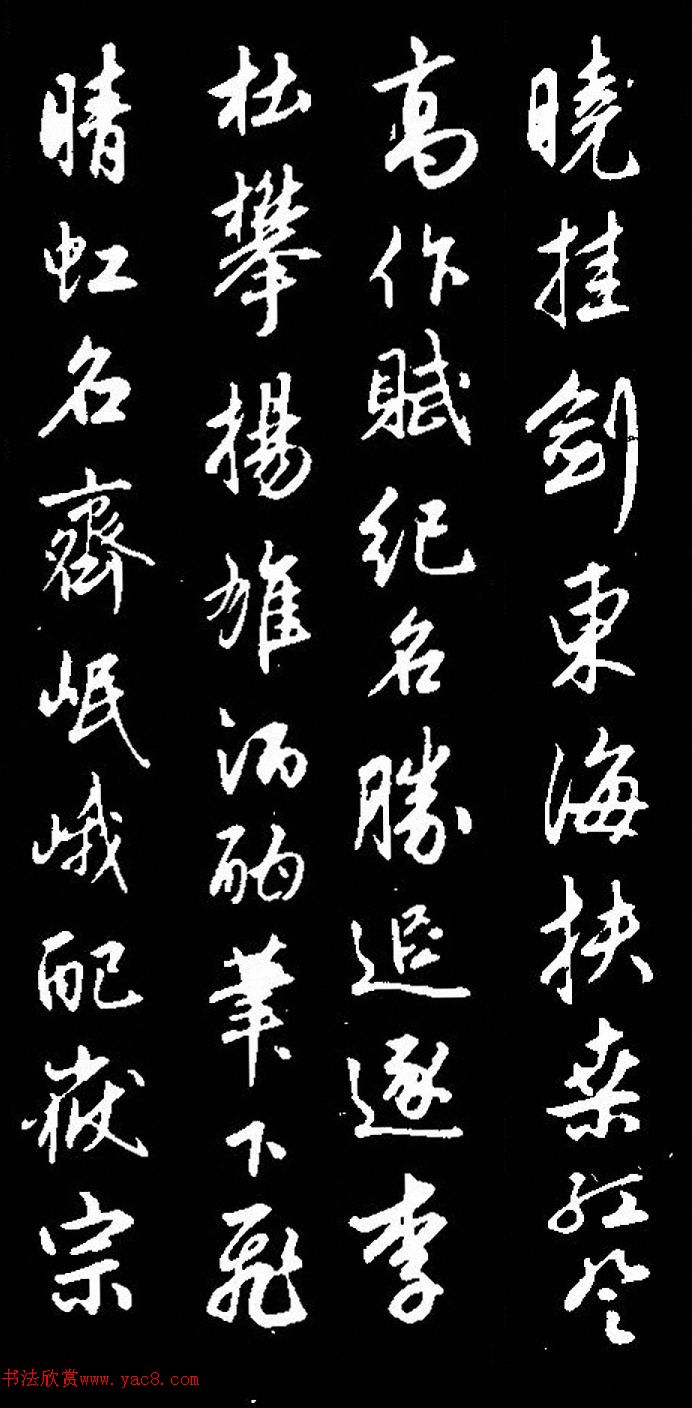 曉挂劍東海扶桑紅登
高作賦紀名勝追逐李
杜攀揚雄酒酣筆下飛
晴虹名齊岷峨配嶽宗
书法欣赏www.yac8.com